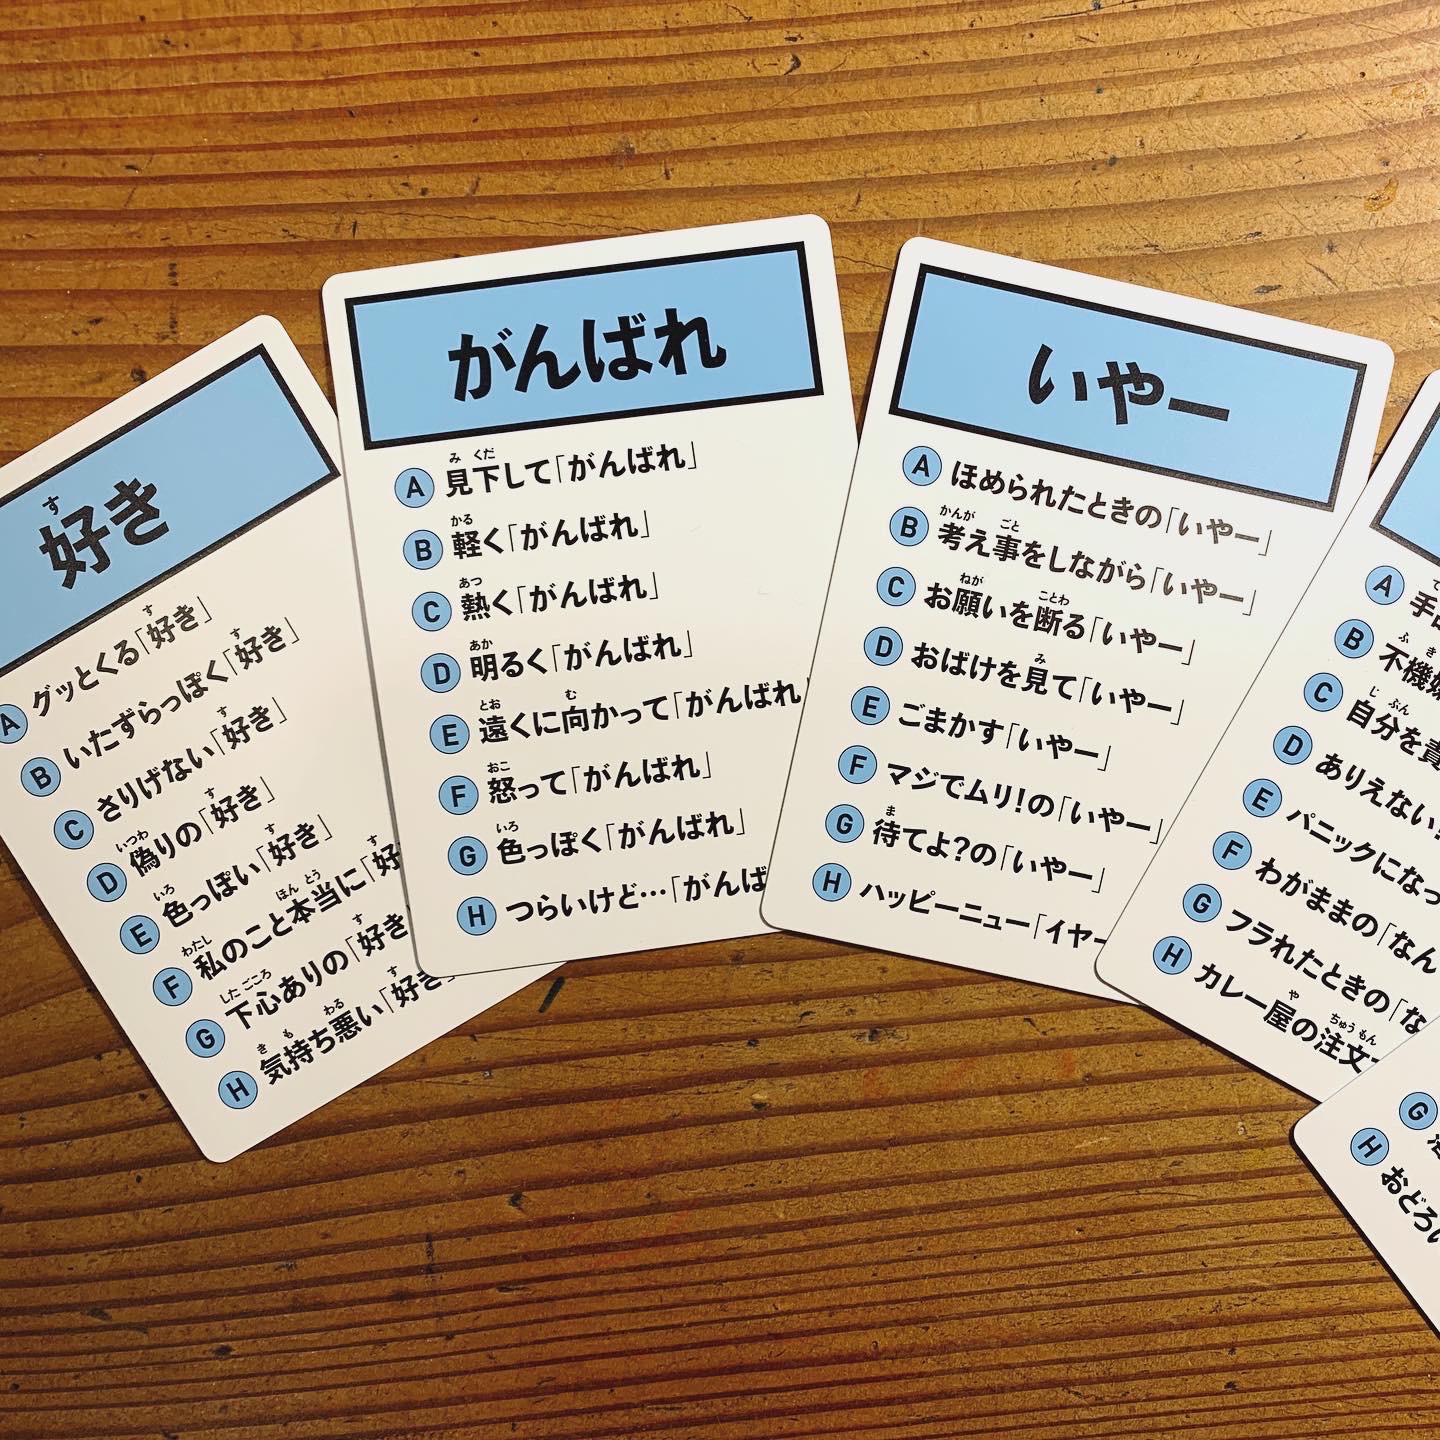 好き
A グッとくる「好き」
B いたずらっぽく「好き」
C さりげない「好き」
D 偽りの「好き」
E 色っぽい「好き」
F 私のこと本当に「好
G 下心ありの「好き
H 気持ち悪い「好き」
がんばれ
A 見下して「がんばれ」
B 軽く「がんばれ」
C 熱く「がんばれ」
D 明るく「がんばれ」
E 遠くに向かって「がんばれ」
F 怒って「がんばれ」
G 色っぽく「がんばれ」
H つらいけど…「がんば
いやー
A ほめられたときの「いやー」
B 考え事をしながら「いやー」
C お願いを断る「いやー」
D おばけを見て「いやー」
E ごまかす「いやー」
F マジでムリ!の「いやー」
G 待てよ?の「いやー」
H ハッピーニュー「イヤー
A 手
B 不機嫌
C 自分を責
D ありえない!
E パニックになっ
F わがままの「なん
G フラれたときの「な
H カレー屋の注文
G
H おどろい